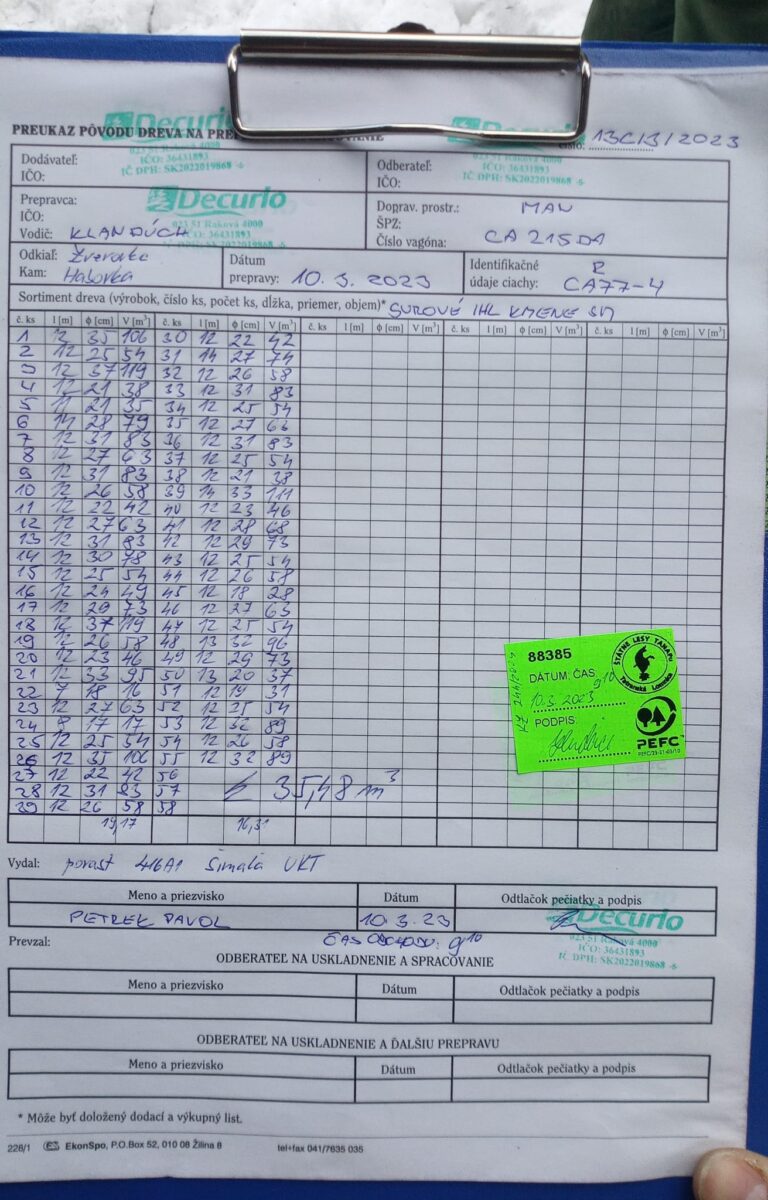 Decurio
Decurio
PREUKAZ PÔVODU DREVA NA
023 51 Raková 4000
IČO: 36431893
IČ DPH: SK2022019868 -6
IČO: 36431893
IČ DPH: SK2022019868 -6
13C/3/2023
Dodávateľ:
IČO:
Odberateľ:
IČO:
Prepravca:
IČO:
Vodič: KLANDÚCH
Decurio
023 51 Raková 4000
IČO: 36431893
Doprav. prostr.: MAN
ŠPZ:
Číslo vagóna: CA 215DA
Odkiaľ: Zverovka
Kam: Haľovka
Dátum
prepravy: 10. 3. 2023
Identifikačné
údaje ciachy: R
CA77-4
Sortiment dreva (výrobok, číslo ks, počet ks, dĺžka, priemer, objem)* SUROVÉ IHL KMENE SM
č. ks l [m] ϕ [cm] V [m³] č. ks l [m] ϕ [cm] V [m³] č. ks l [m] ϕ [cm] V [m³] č. ks l [m] ϕ [cm] V [m³] č. ks l [m] ϕ [cm] V [m³]
1 35 106 30 12 22 42
2 12 25 54 31 14 27 74
3 12 37 119 32 12 26 58
4 12 21 38 33 12 31 83
5 11 21 35 34 12 25 54
6 14 28 79 35 12 27 63
7 12 31 83 36 12 31 83
8 12 27 63 37 12 25 54
9 12 31 83 38 12 21 38
10 12 26 58 39 14 33 111
11 12 22 42 40 12 23 46
12 12 27 63 41 12 28 68
13 12 31 83 42 12 29 73
14 12 30 78 43 12 25 54
15 12 25 54 44 12 26 58
16 12 24 49 45 12 18 28
17 12 29 73 46 12 27 63
18 12 37 119 47 12 25 54
19 12 26 58 48 13 32 96
20 12 23 46 49 12 29 73
21 12 33 95 50 13 20 37
22 7 18 16 51 12 19 31
23 12 27 63 52 12 25 54
24 8 17 17 53 12 32 89
25 12 25 54 54 12 26 58
26 12 35 106 55 12 32 89
27 12 22 42 56
28 12 31 83 57
29 12 26 58 58
35,48 m³
19,17 16,31
88385
DÁTUM, ČAS
10.3.2023 9¹⁰
PODPIS:
ŠTÁTNE LESY TANAPU
Tatranská Lomnica
PEFC
Vydal: porast 416A1 Šimalá VKT
Meno a priezvisko Dátum Odtlačok pečiatky a podpis
PETREK PAVOL 10.3.23
Decurio
023 51 Raková 4000
IČO: 36431893
IČ DPH: SK2022019868 -6
Prevzal: ČAS ODCHODU: 9¹⁰
ODBERATEĽ NA USKLADNENIE A SPRACOVANIE
Meno a priezvisko Dátum Odtlačok pečiatky a podpis
ODBERATEĽ NA USKLADNENIE A ĎALŠIU PREPRAVU
Meno a priezvisko Dátum Odtlačok pečiatky a podpis
* Môže byť doložený dodací a výkupný list.
226/1 EkonSpo, P.O.Box 52, 010 08 Žilina 8 tel+fax 041/7635 035